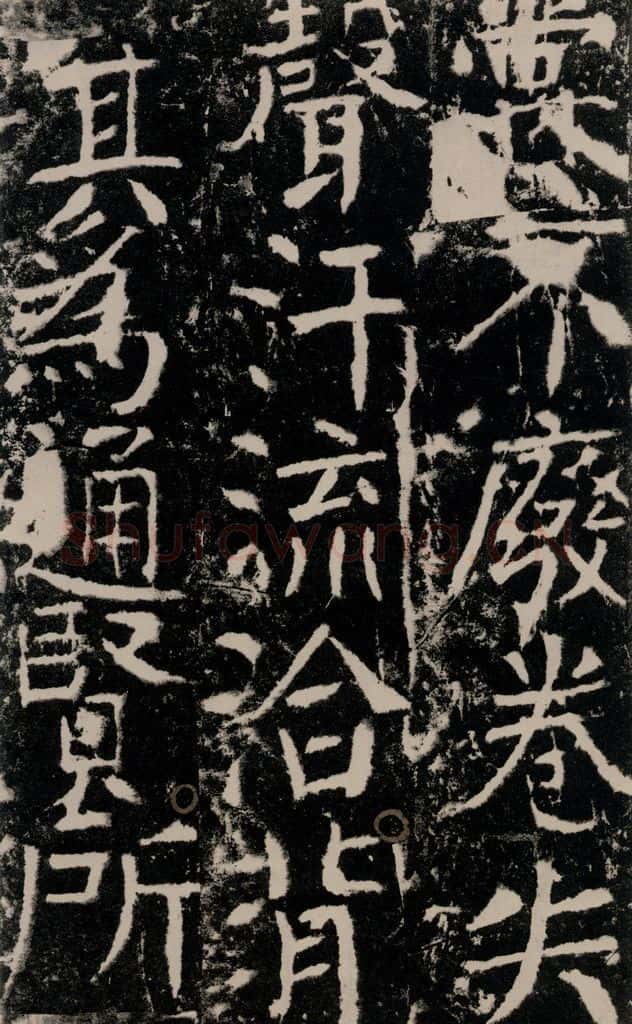 不廢卷失
聲汗流洽背
其為通賢所
Shufawang.CN